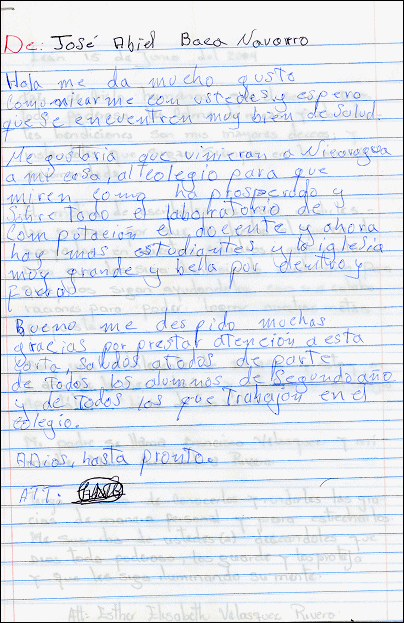 De: José Abiel Baca Navarro
Hola me da mucho gusto
comonicarme com ustedes y espero
que se encuentren muy bien de salud.
Me gustaria que vinieran a Nicaragua
a mi casa al colegio para que
miren como ha prosperado y
sobre todo el laboratorio de
Computación el docente y ahora
hay mas estudiantes y la iglesia
muy grande y bella por dentro y
fuera
Bueno me despido muchas
gracias por prestar atención a esta
carta, saludos a todos de parte
de todos los alumnos de segundo año
y de todos los que trabajan en el
colegio.
Adios, hasta pronto.
ATT:
Att: Esther Elisabeth Velasquez Rivero